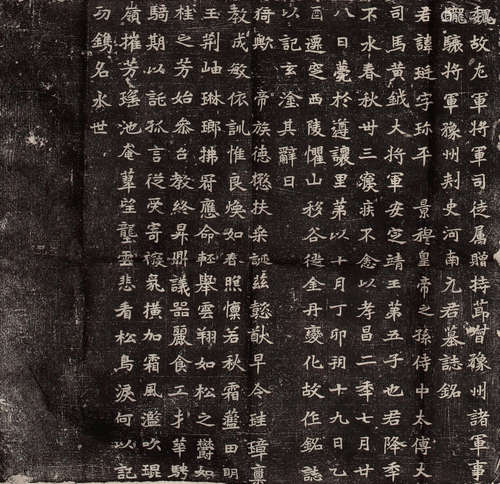 魏故左軍將軍司徒屬贈持節督豫州諸軍事
龍驤將軍豫州刾史河南元君墓誌銘
君諱珽字珎平　景穆皇帝之孫侍中太傅大
司馬黃鉞大將軍安定靖王第五子也君降年
不永春秋卅三寢疾不悆以孝昌二年七月廿
八日薨於遵讓里第以十月丁卯朔十九日乙
酉遷窆西陵懼山移谷徙金丹變化故作銘誌
以記玄塗其辭曰
猗歟　帝族德懋扶桒誕茲懿猷早令珪璋稟
教成敏依訓惟良煥如春照懍若秋霜藍田明
玉荊岫琳瑯拂衿應命輕舉雲翔如松之鬱如
桂之芳始叅台教終昇鼎議器麗食工才華騁
驥期以託孤言從受寄祲氣橫加霜風濫吹琨
嶺摧芳瑤池奄萃塋壟雲悲看松鳥淚何以記
功鐫名永世